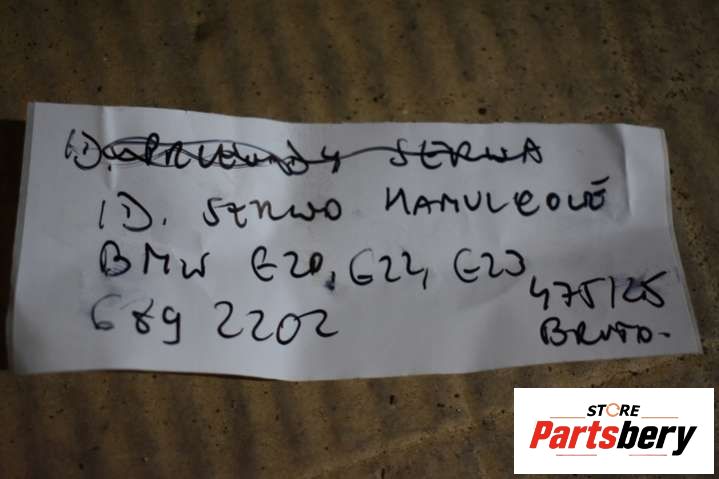 1D. PRZEWODY SERWA
1D. SERWO HAMULCOWE
BMW G20, G22, G23
689 2202
475/25
BRUTTO-
STORE
Partsbery